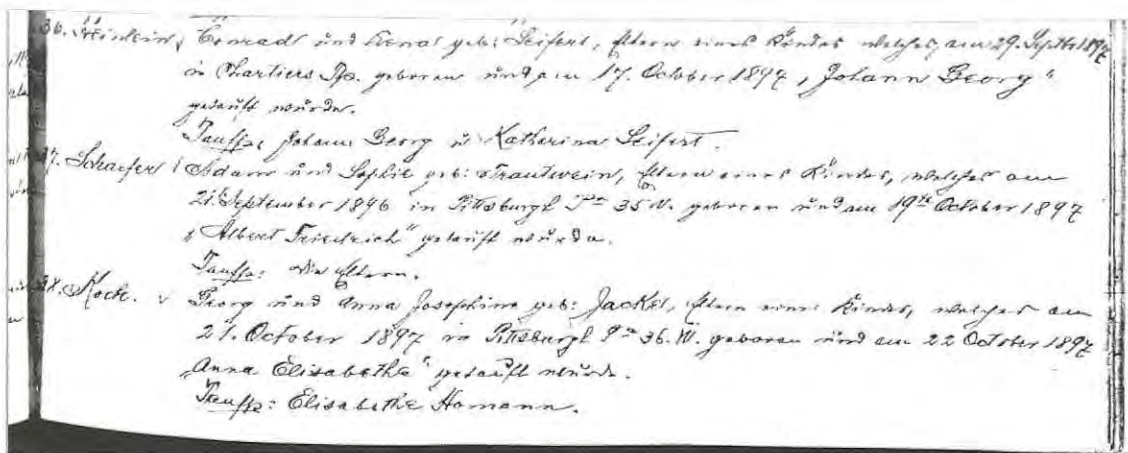 36. Conrad und Lena geb: Seifert, Eltern eines Kindes welches am 29. Septbr 1897
in Chartiers Tp. geboren und am 17. October 1897 „Johann Georg“
getauft wurde.
Taufzg: Johann Georg u Katharina Seifert.
37. Schaefer, Adam und Sophie geb: Trautwein, Eltern eines Kindes, welches am
21. September 1896 in Pittsburgh Pa 35 W. geboren und am 19te October 1897
„Albert Friedrich“ getauft wurde.
Taufzg: die Eltern.
38. Koch. Georg und Anna Josephine geb: Jackel, Eltern eines Kindes, welches am
21. October 1897 in Pittsburgh Pa 36. W. geboren und am 22 October 1897
„Anna Elisabethe“ getauft wurde.
Taufzg: Elisabethe Hamann.